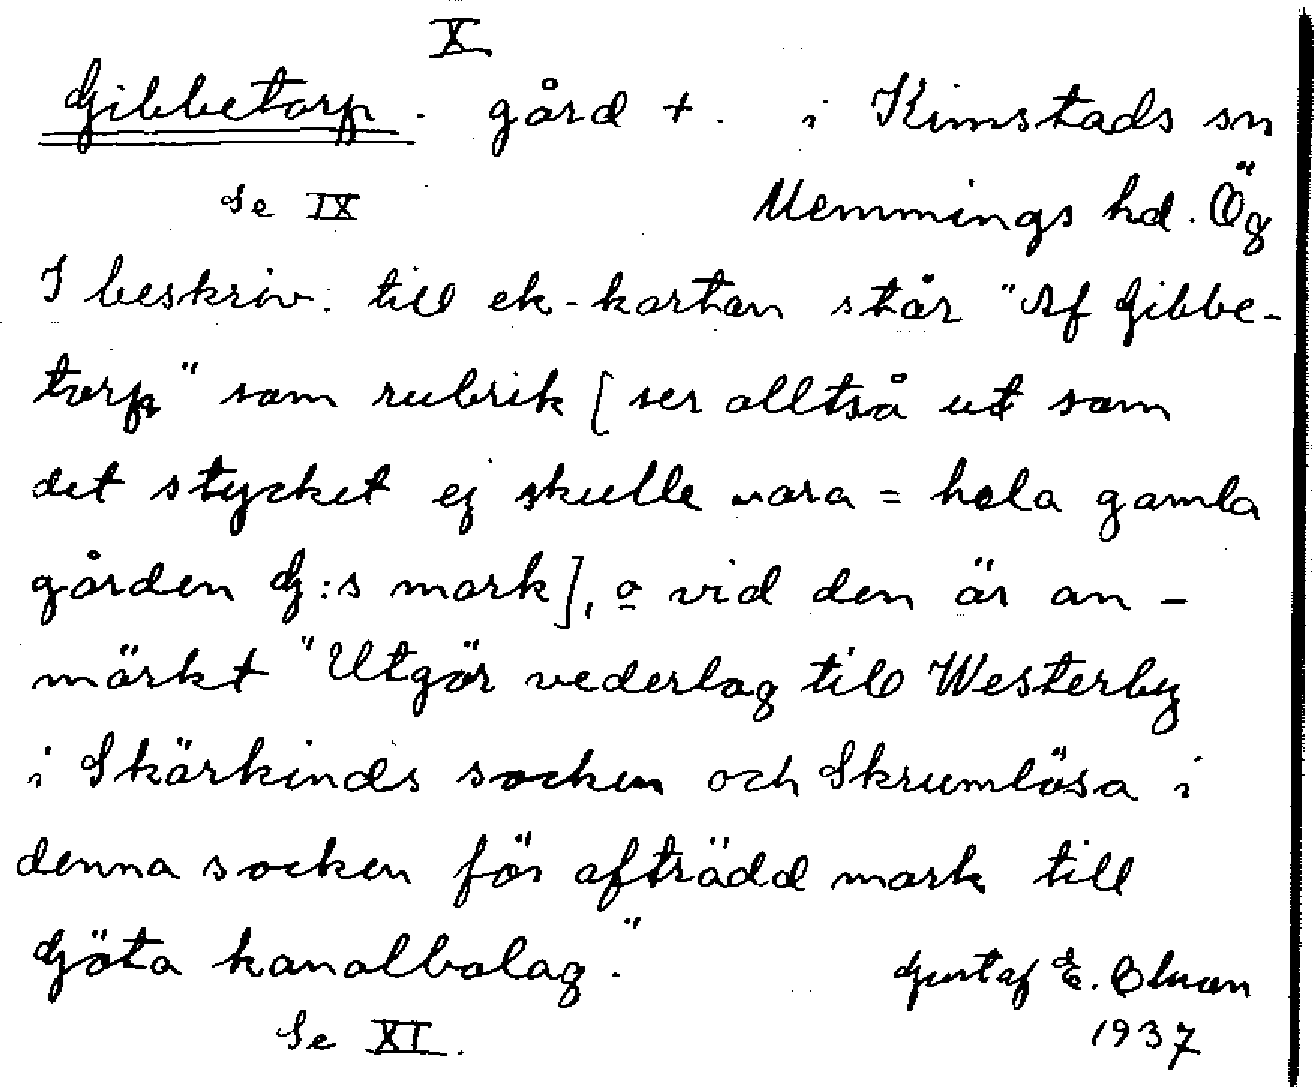 X
Gibbetorp. gård +. i Kimstads sn
Se IX Memmings hd. Ög
I beskriv. till ek-kartan står "Af Gibbe-
torp" som rubrik [ser alltså ut som
det stycket ej skulle vara = hela gamla
gården G:s mark], o vid den är an-
märkt "Utgör vederlag till Westerby
i Skärkinds socken och Skrumlösa i
denna socken för afträdd mark till
Göta kanalbolag."
Gustaf E. Olsson
Se XI. 1937